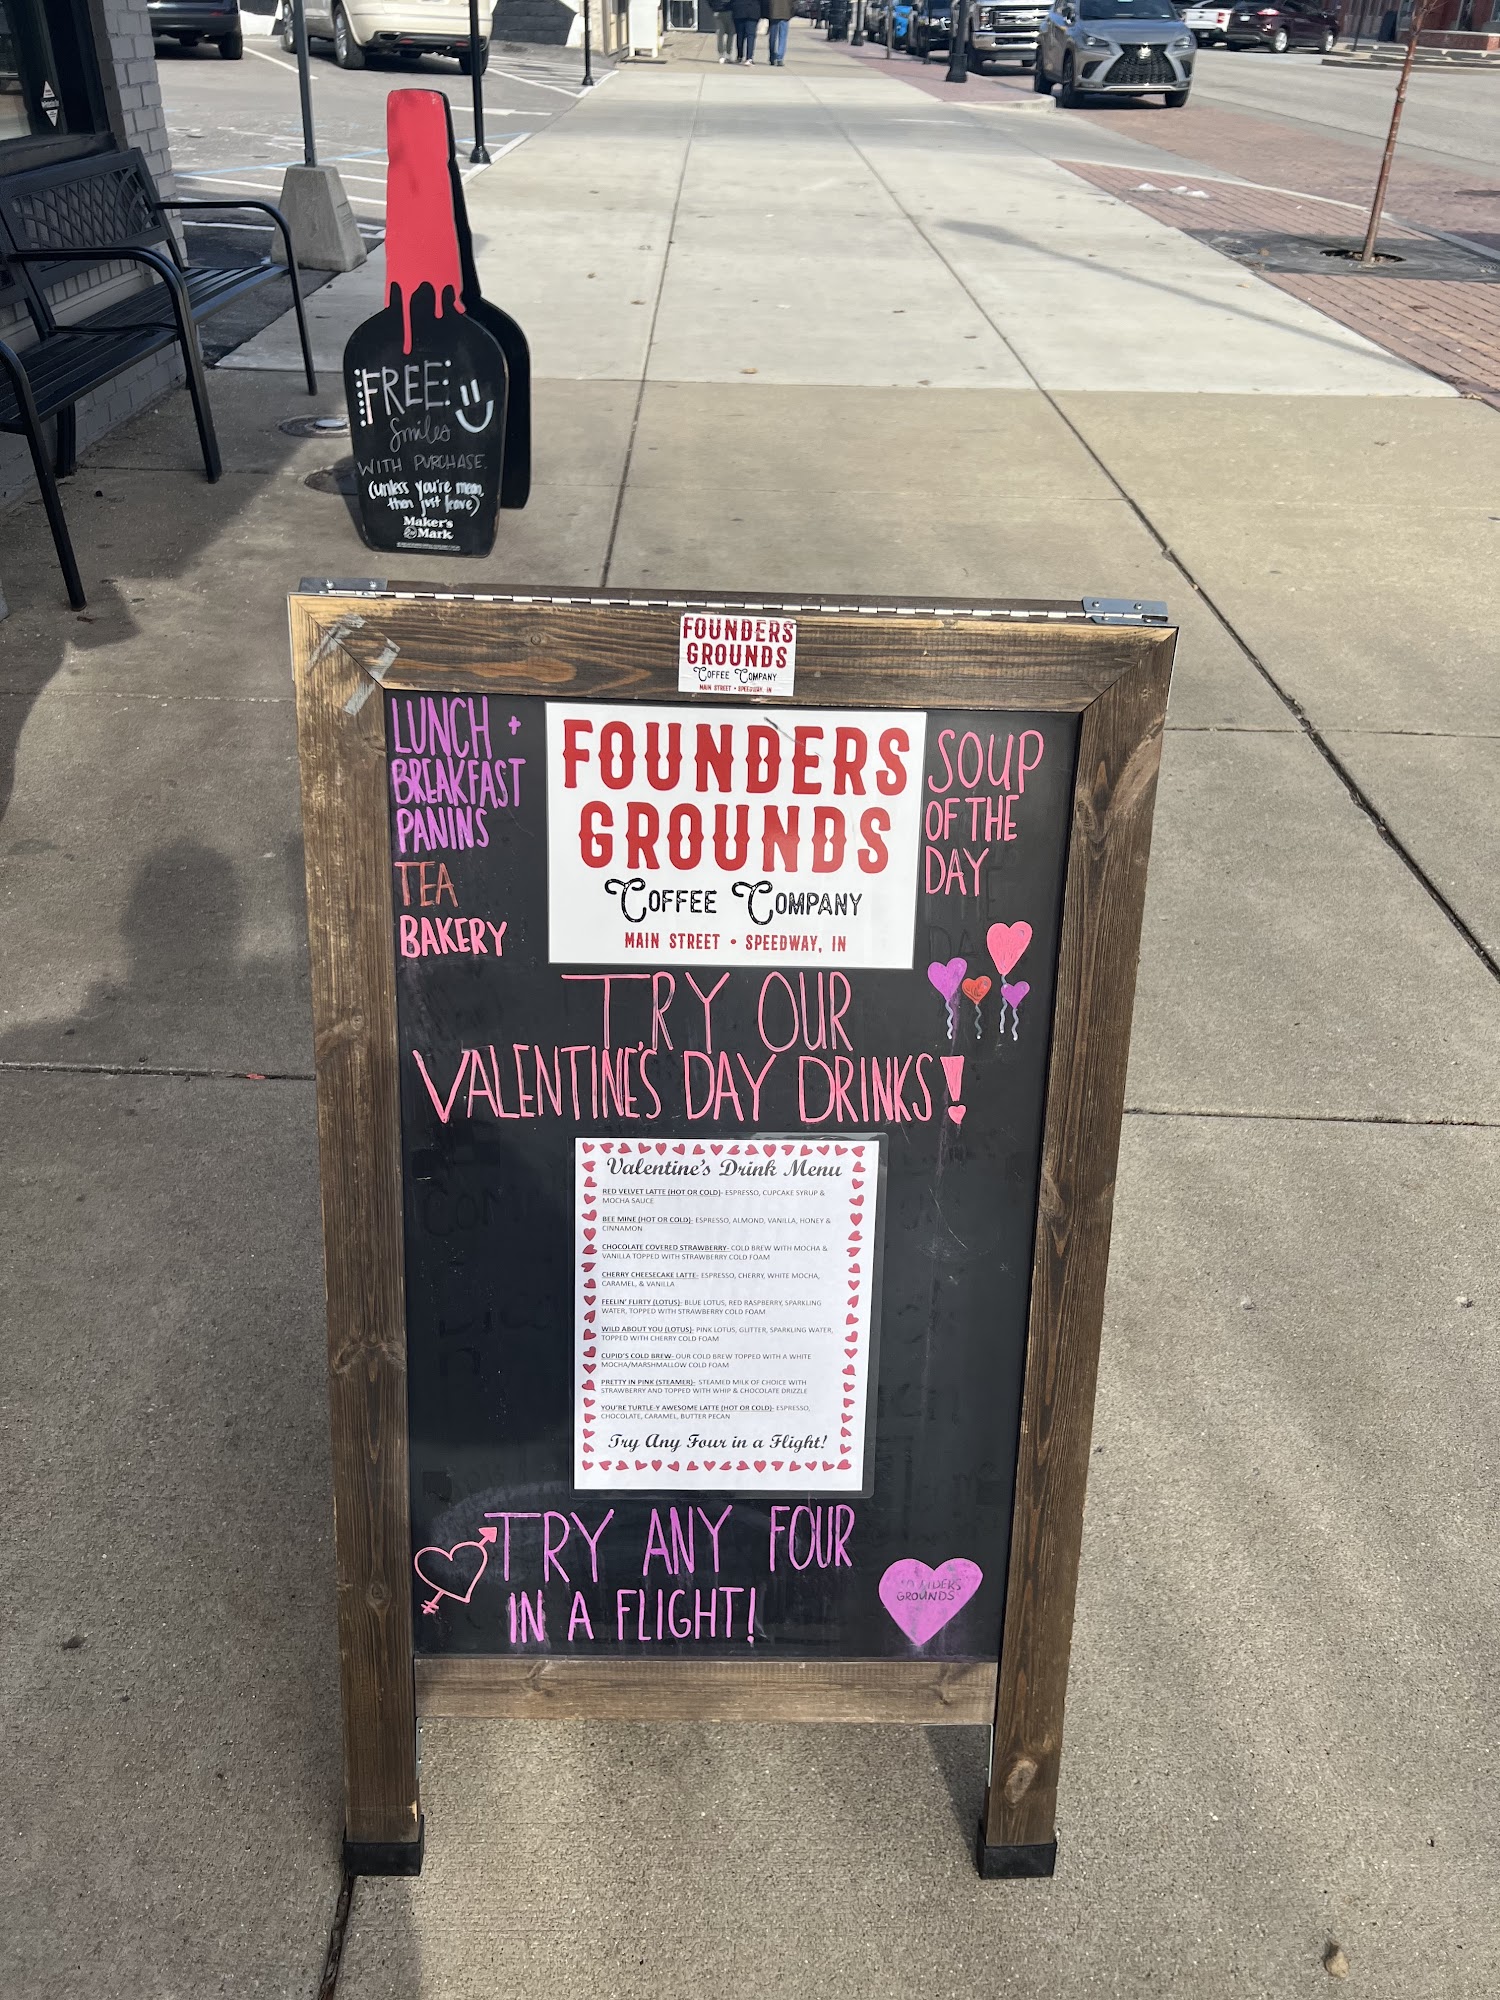 FREE
Smiles
WITH PURCHASE.
(unless you're mean,
then just leave)
Maker's
Mark
FOUNDERS
GROUNDS
COFFEE COMPANY
MAIN STREET • SPEEDWAY, IN
LUNCH +
BREAKFAST
PANINS
TEA
BAKERY
FOUNDERS
GROUNDS
COFFEE COMPANY
MAIN STREET • SPEEDWAY, IN
SOUP
OF THE
DAY
TRY OUR
VALENTINE'S DAY DRINKS!
Valentine's Drink Menu
RED VELVET LATTE (HOT OR COLD)- ESPRESSO, CUPCAKE SYRUP &
MOCHA SAUCE
BEE MINE (HOT OR COLD)- ESPRESSO, ALMOND, VANILLA, HONEY &
CINNAMON
CHOCOLATE COVERED STRAWBERRY- COLD BREW WITH MOCHA &
VANILLA TOPPED WITH STRAWBERRY COLD FOAM
CHERRY CHEESECAKE LATTE- ESPRESSO, CHERRY, WHITE MOCHA,
CARAMEL, & VANILLA
FEELIN' FLIRTY (LOTUS)- BLUE LOTUS, RED RASPBERRY, SPARKLING
WATER, TOPPED WITH STRAWBERRY COLD FOAM
WILD ABOUT YOU (LOTUS)- PINK LOTUS, GLITTER, SPARKLING WATER,
TOPPED WITH CHERRY COLD FOAM
CUPID'S COLD BREW- OUR COLD BREW TOPPED WITH A WHITE
MOCHA/MARSHMALLOW COLD FOAM
PRETTY IN PINK (STEAMER)- STEAMED MILK OF CHOICE WITH
STRAWBERRY AND TOPPED WITH WHIP & CHOCOLATE DRIZZLE
YOU'RE TURTLE-Y AWESOME LATTE (HOT OR COLD)- ESPRESSO,
CHOCOLATE, CARAMEL, BUTTER PECAN
Try Any Four in a Flight!
TRY ANY FOUR
IN A FLIGHT!
GROUNDS